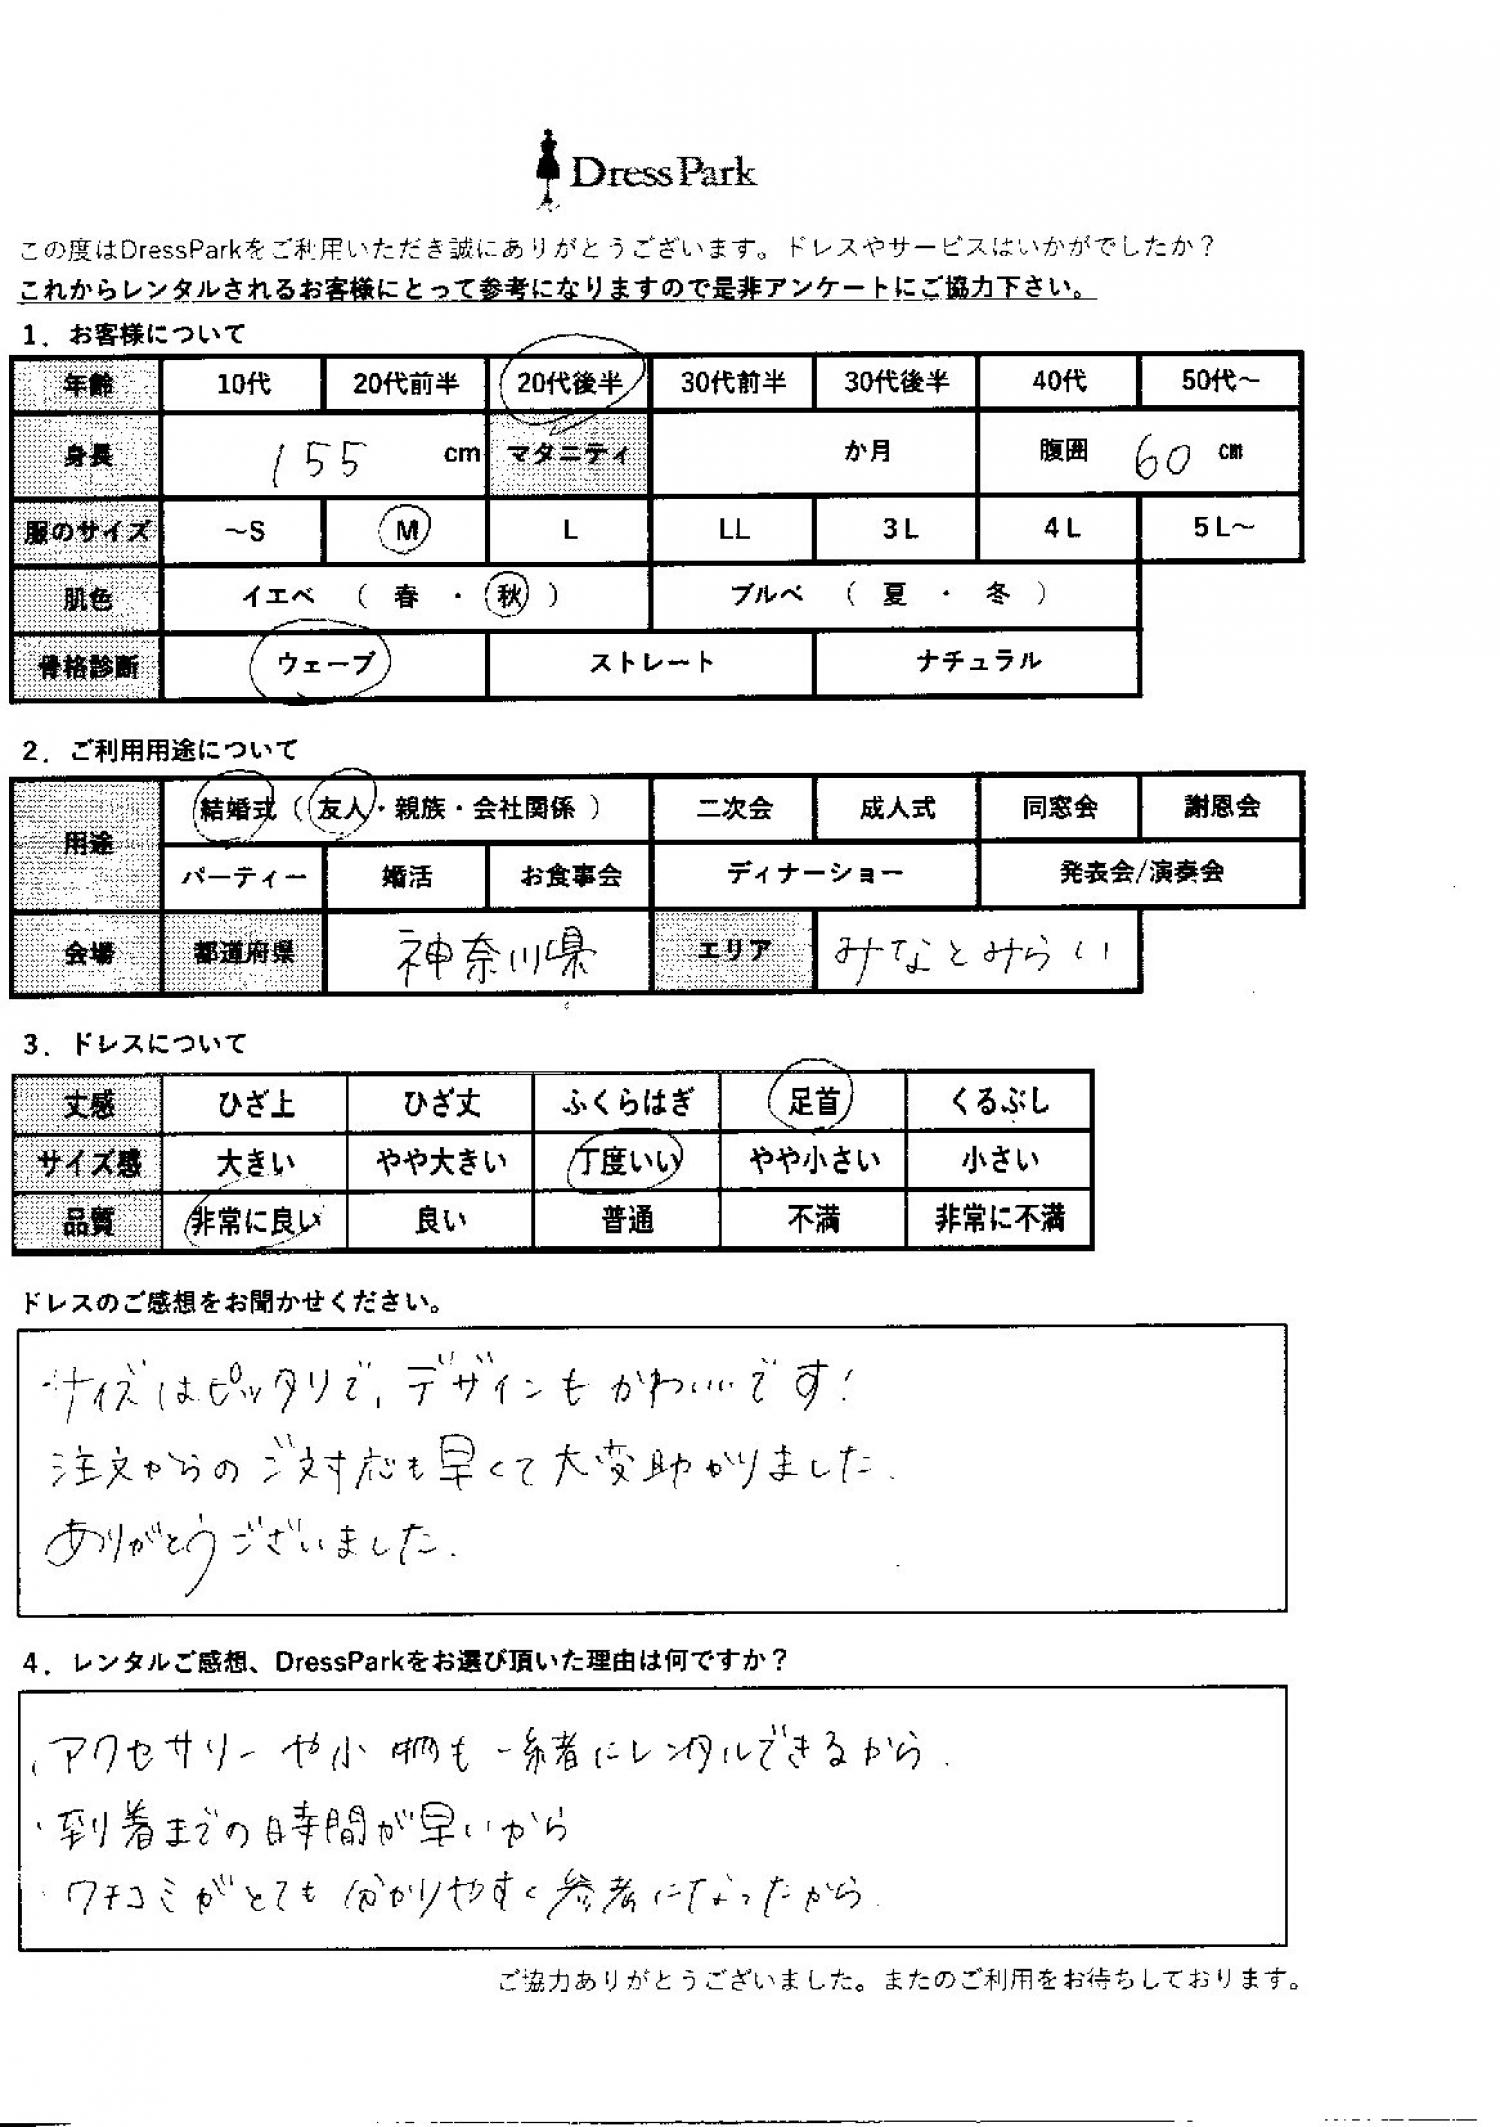 DressPark
この度はDressParkをご利用いただき誠にありがとうございます。ドレスやサービスはいかがでしたか？
これからレンタルされるお客様にとって参考になりますので是非アンケートにご協力下さい。
1．お客様について
年齢 10代 20代前半 20代後半 30代前半 30代後半 40代 50代～
身長 155 cm マタニティ か月 腹囲 60 cm
服のサイズ ～S M L LL 3L 4L 5L～
肌色 イエベ （ 春 ・ 秋 ） ブルベ （ 夏 ・ 冬 ）
骨格診断 ウェーブ ストレート ナチュラル
2．ご利用用途について
用途 結婚式（ 友人・親族・会社関係 ） 二次会 成人式 同窓会 謝恩会
パーティー 婚活 お食事会 ディナーショー 発表会/演奏会
会場 都道府県 神奈川県 エリア みなとみらい
3．ドレスについて
丈感 ひざ上 ひざ丈 ふくらはぎ 足首 くるぶし
サイズ感 大きい やや大きい 丁度いい やや小さい 小さい
品質 非常に良い 良い 普通 不満 非常に不満
ドレスのご感想をお聞かせください。
サイズはピッタリで、デザインもかわいいです！
注文からのご対応も早くて大変助かりました.
ありがとうございました.
4．レンタルご感想、DressParkをお選び頂いた理由は何ですか？
・アクセサリーや小物も一緒にレンタルできるから.
・到着までの時間が早いから
・クチコミがとても分かりやすく参考になったから.
ご協力ありがとうございました。またのご利用をお待ちしております。